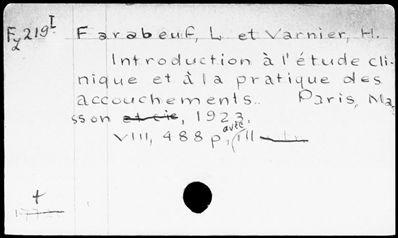 F₂219 I Farabeuf, L. et Varnier, H.
Introduction à l'étude cli-
nique et à la pratique des
accouchements.. Paris, Ma-
sson et cie, 1923,
VIII, 488 p., avec ill
+